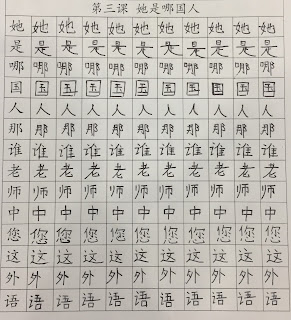 第三课 她是哪国人
她她她她她她她她她她她
是是是是是是是是是是是
哪哪哪哪哪哪哪哪哪哪哪
国国国国国国国国国国国
人人人人人人人人人人人
那那那那那那那那那那那
谁谁谁谁谁谁谁谁谁谁谁
老老老老老老老老老老老
师师师师师师师师师师师
中中中中中中中中中中中
您您您您您您您您您您您
这这这这这这这这这这这
外外外外外外外外外外外
语语语语语语语语语语语